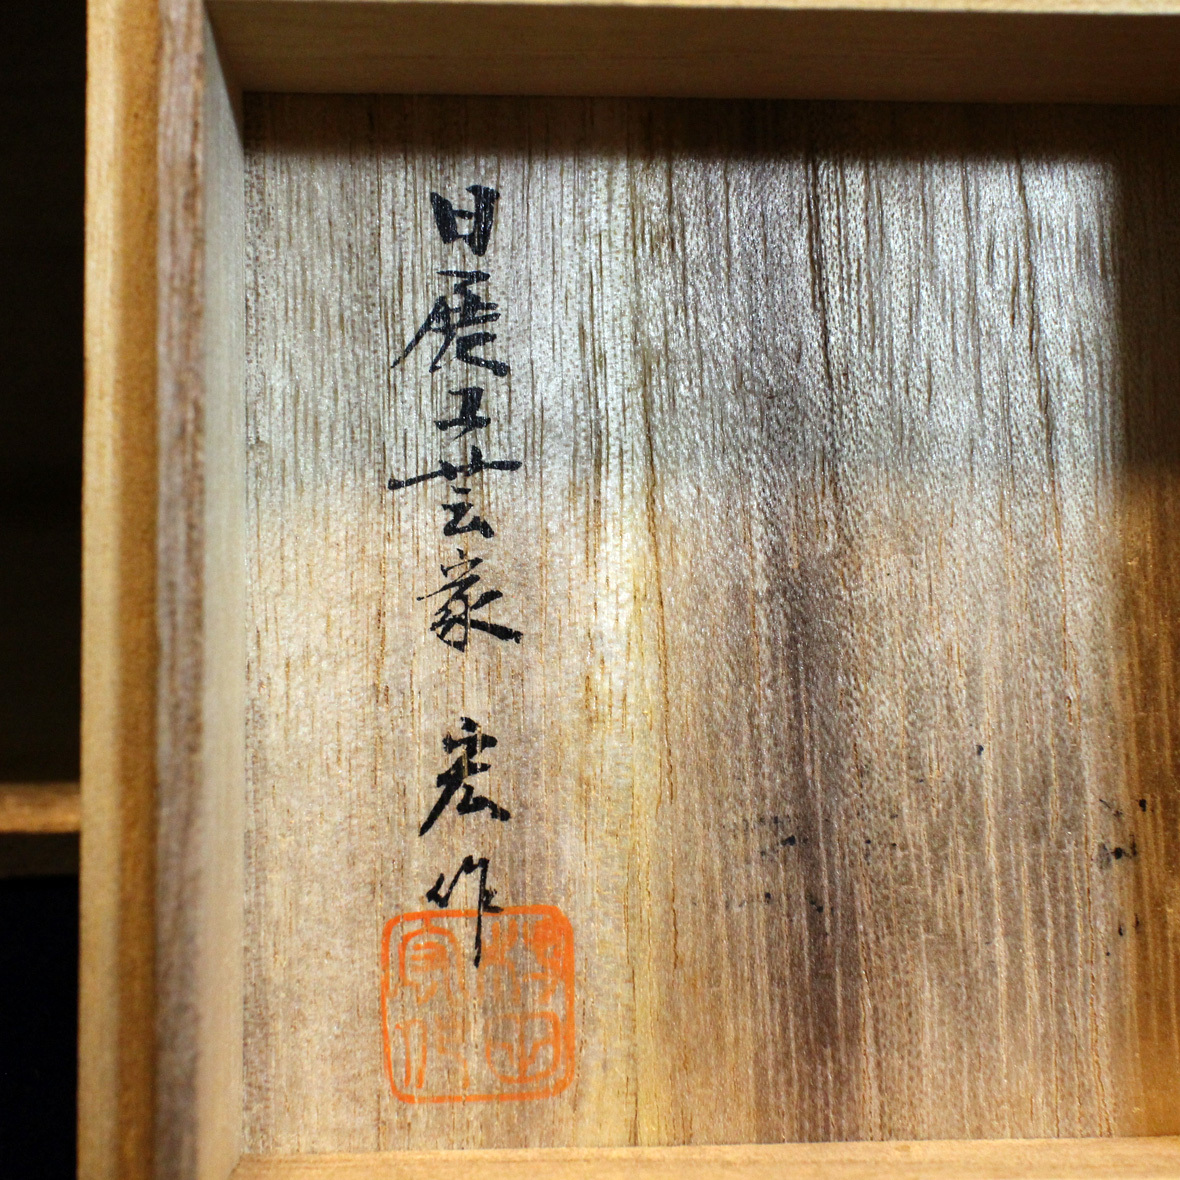 日展工芸家 宏作